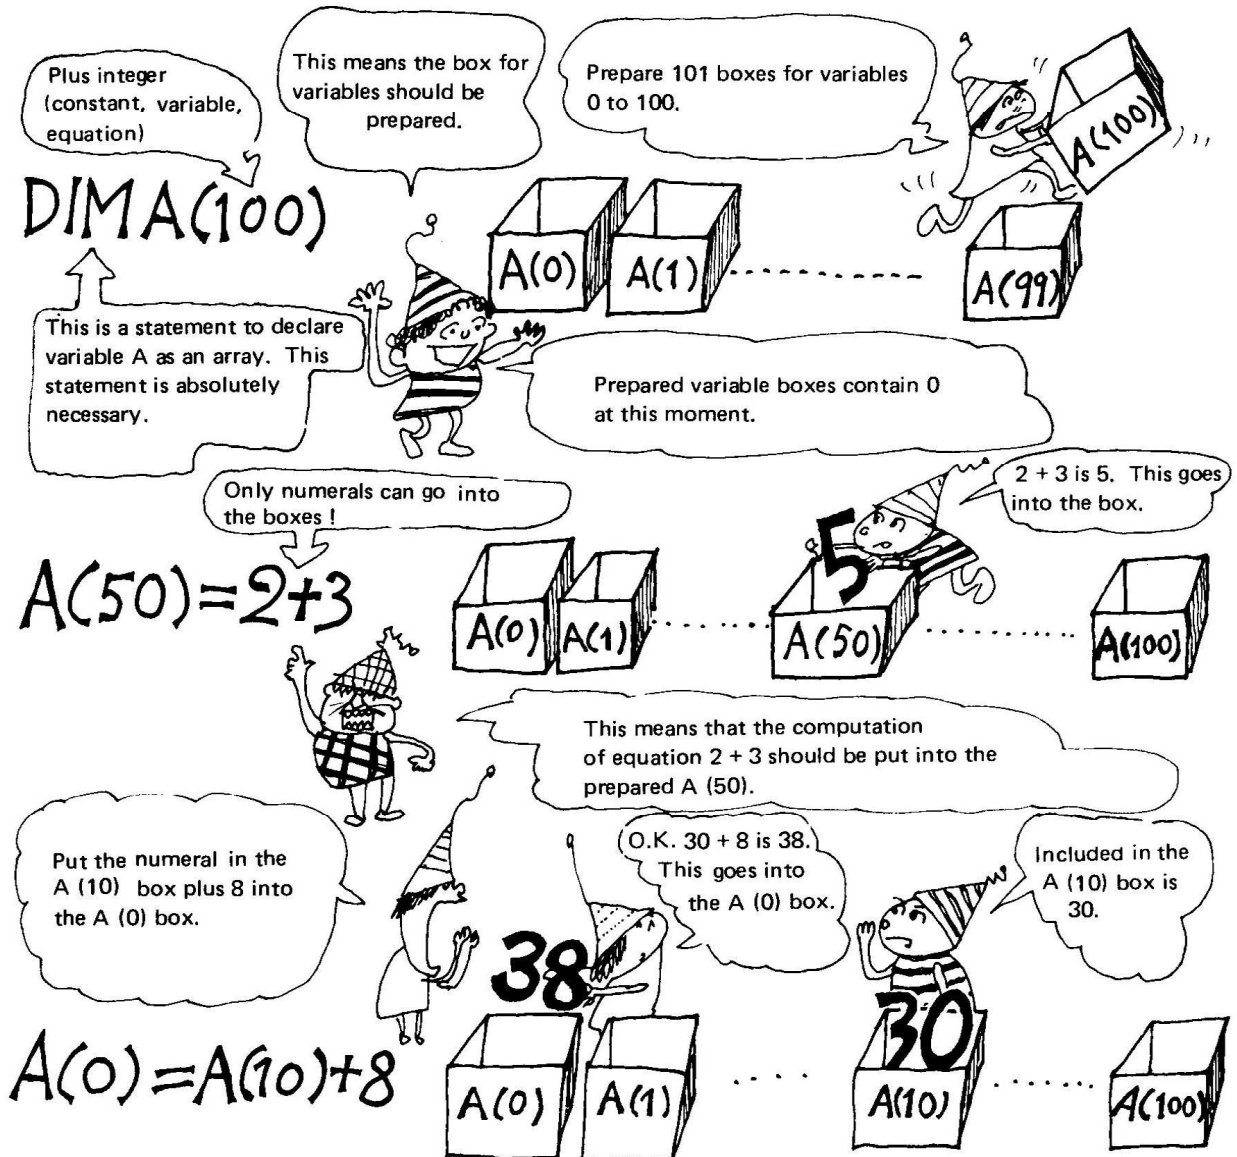 Plus integer
(constant, variable,
equation)
This means the box for
variables should be
prepared.
Prepare 101 boxes for variables
0 to 100.
A(100)
DIM A(100)
A(0)
A(1)
A(99)
This is a statement to declare
variable A as an array. This
statement is absolutely
necessary.
Prepared variable boxes contain 0
at this moment.
Only numerals can go into
the boxes !
2 + 3 is 5. This goes
into the box.
5
A(50)=2+3
A(0)
A(1)
A(50)
A(100)
This means that the computation
of equation 2 + 3 should be put into the
prepared A (50).
Put the numeral in the
A (10) box plus 8 into
the A (0) box.
O.K. 30 + 8 is 38.
This goes into
the A (0) box.
Included in the
A (10) box is
30.
38
30
A(0)=A(10)+8
A(0)
A(1)
A(10)
A(100)